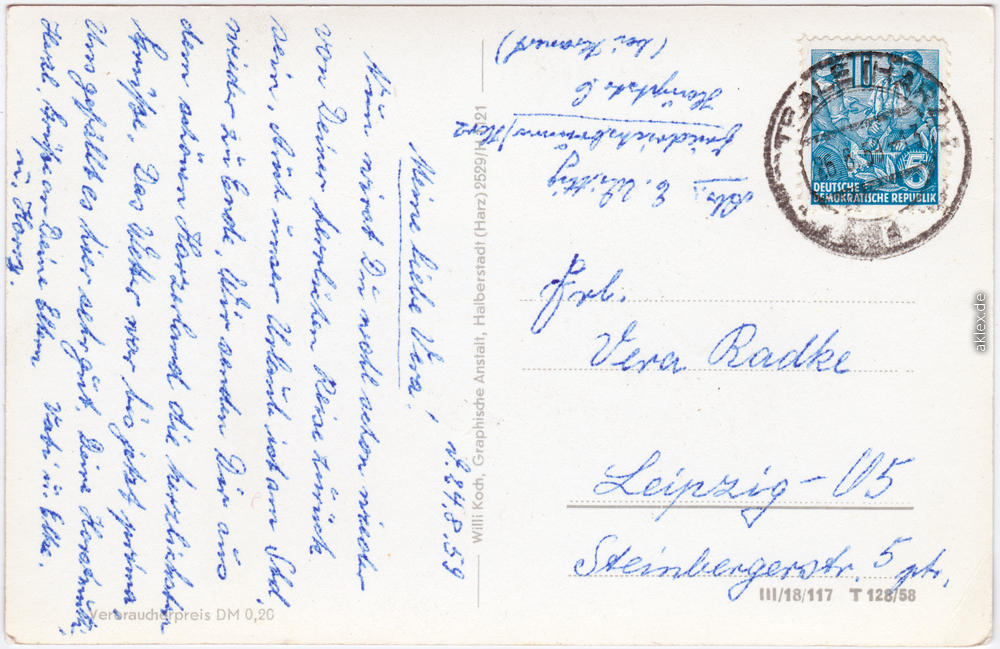 d. 24.8.59
Meine liebe Vera!
Nun wirst Du wohl schon wieder
von Deiner herrlichen Reise zurück
sein. Auch unser Urlaub ist am Sbd.
wieder zu Ende. Wir senden Dir aus
dem schönen Harzerland die herzlichsten
Grüße. Das Wetter war bis jetzt prima
Uns gefällt es hier sehr gut. Deine
Herzl. Grüße an Deine Eltern. Vati u. Elke.
u. Harry.
Abs.
Friedrichsbrunn/Harz
Hauptstr. 6
(bei
Willi Koch, Graphische Anstalt, Halberstadt (Harz) 2529/H 1021
Verbraucherpreis DM 0,20
10
5
DEUTSCHE
DEMOKRATISCHE REPUBLIK
THALE (HARZ)
Frl.
Vera Radke
Leipzig-O5
Steinbergerstr. 5 ptr.
III/18/117 T 128/58
aklex.de